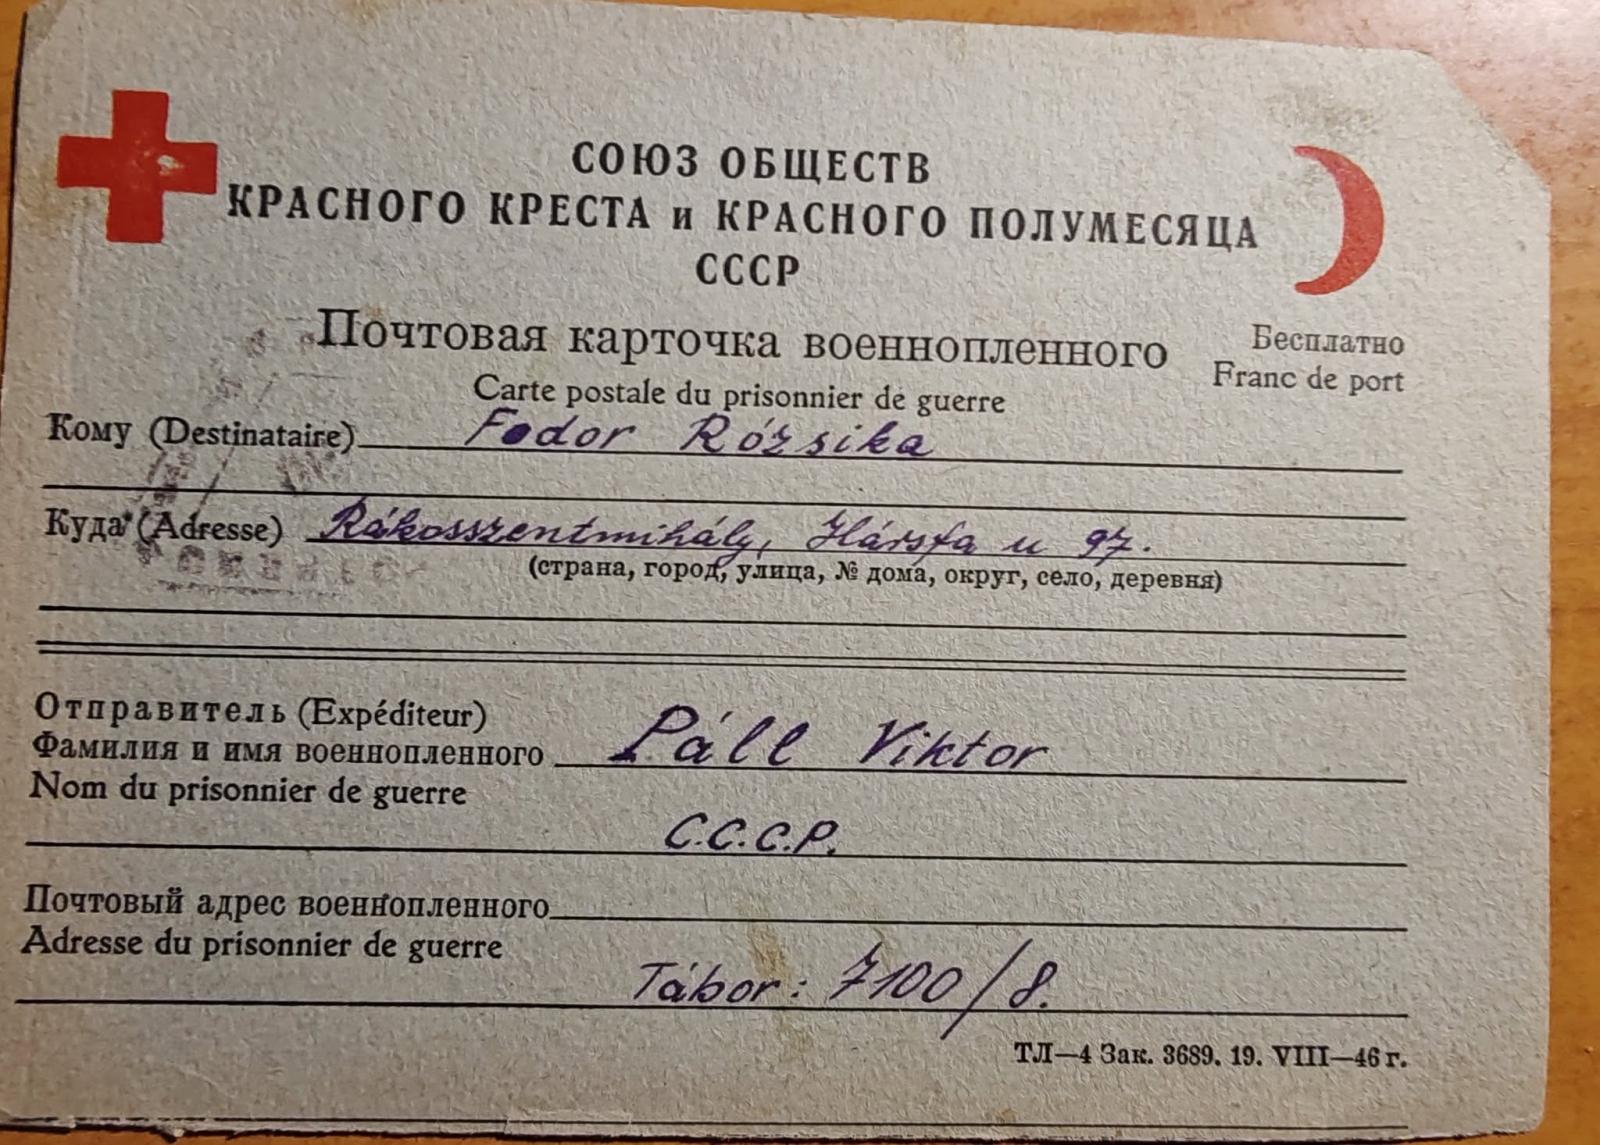 СОЮЗ ОБЩЕСТВ
КРАСНОГО КРЕСТА и КРАСНОГО ПОЛУМЕСЯЦА
СССР
Почтовая карточка военнопленного
Бесплатно
Carte postale du prisonnier de guerre
Franc de port
Кому (Destinataire) Fodor Rózsika
Куда (Adresse) Rákosszentmihály, Hársfa u 97.
(страна, город, улица, № дома, округ, село, деревня)
Отправитель (Expéditeur)
Фамилия и имя военнопленного Páll Viktor
Nom du prisonnier de guerre
С.С.С.Р.
Почтовый адрес военнопленного
Adresse du prisonnier de guerre
Tábor: 7100/8.
ТЛ—4 Зак. 3689. 19. VIII—46 г.